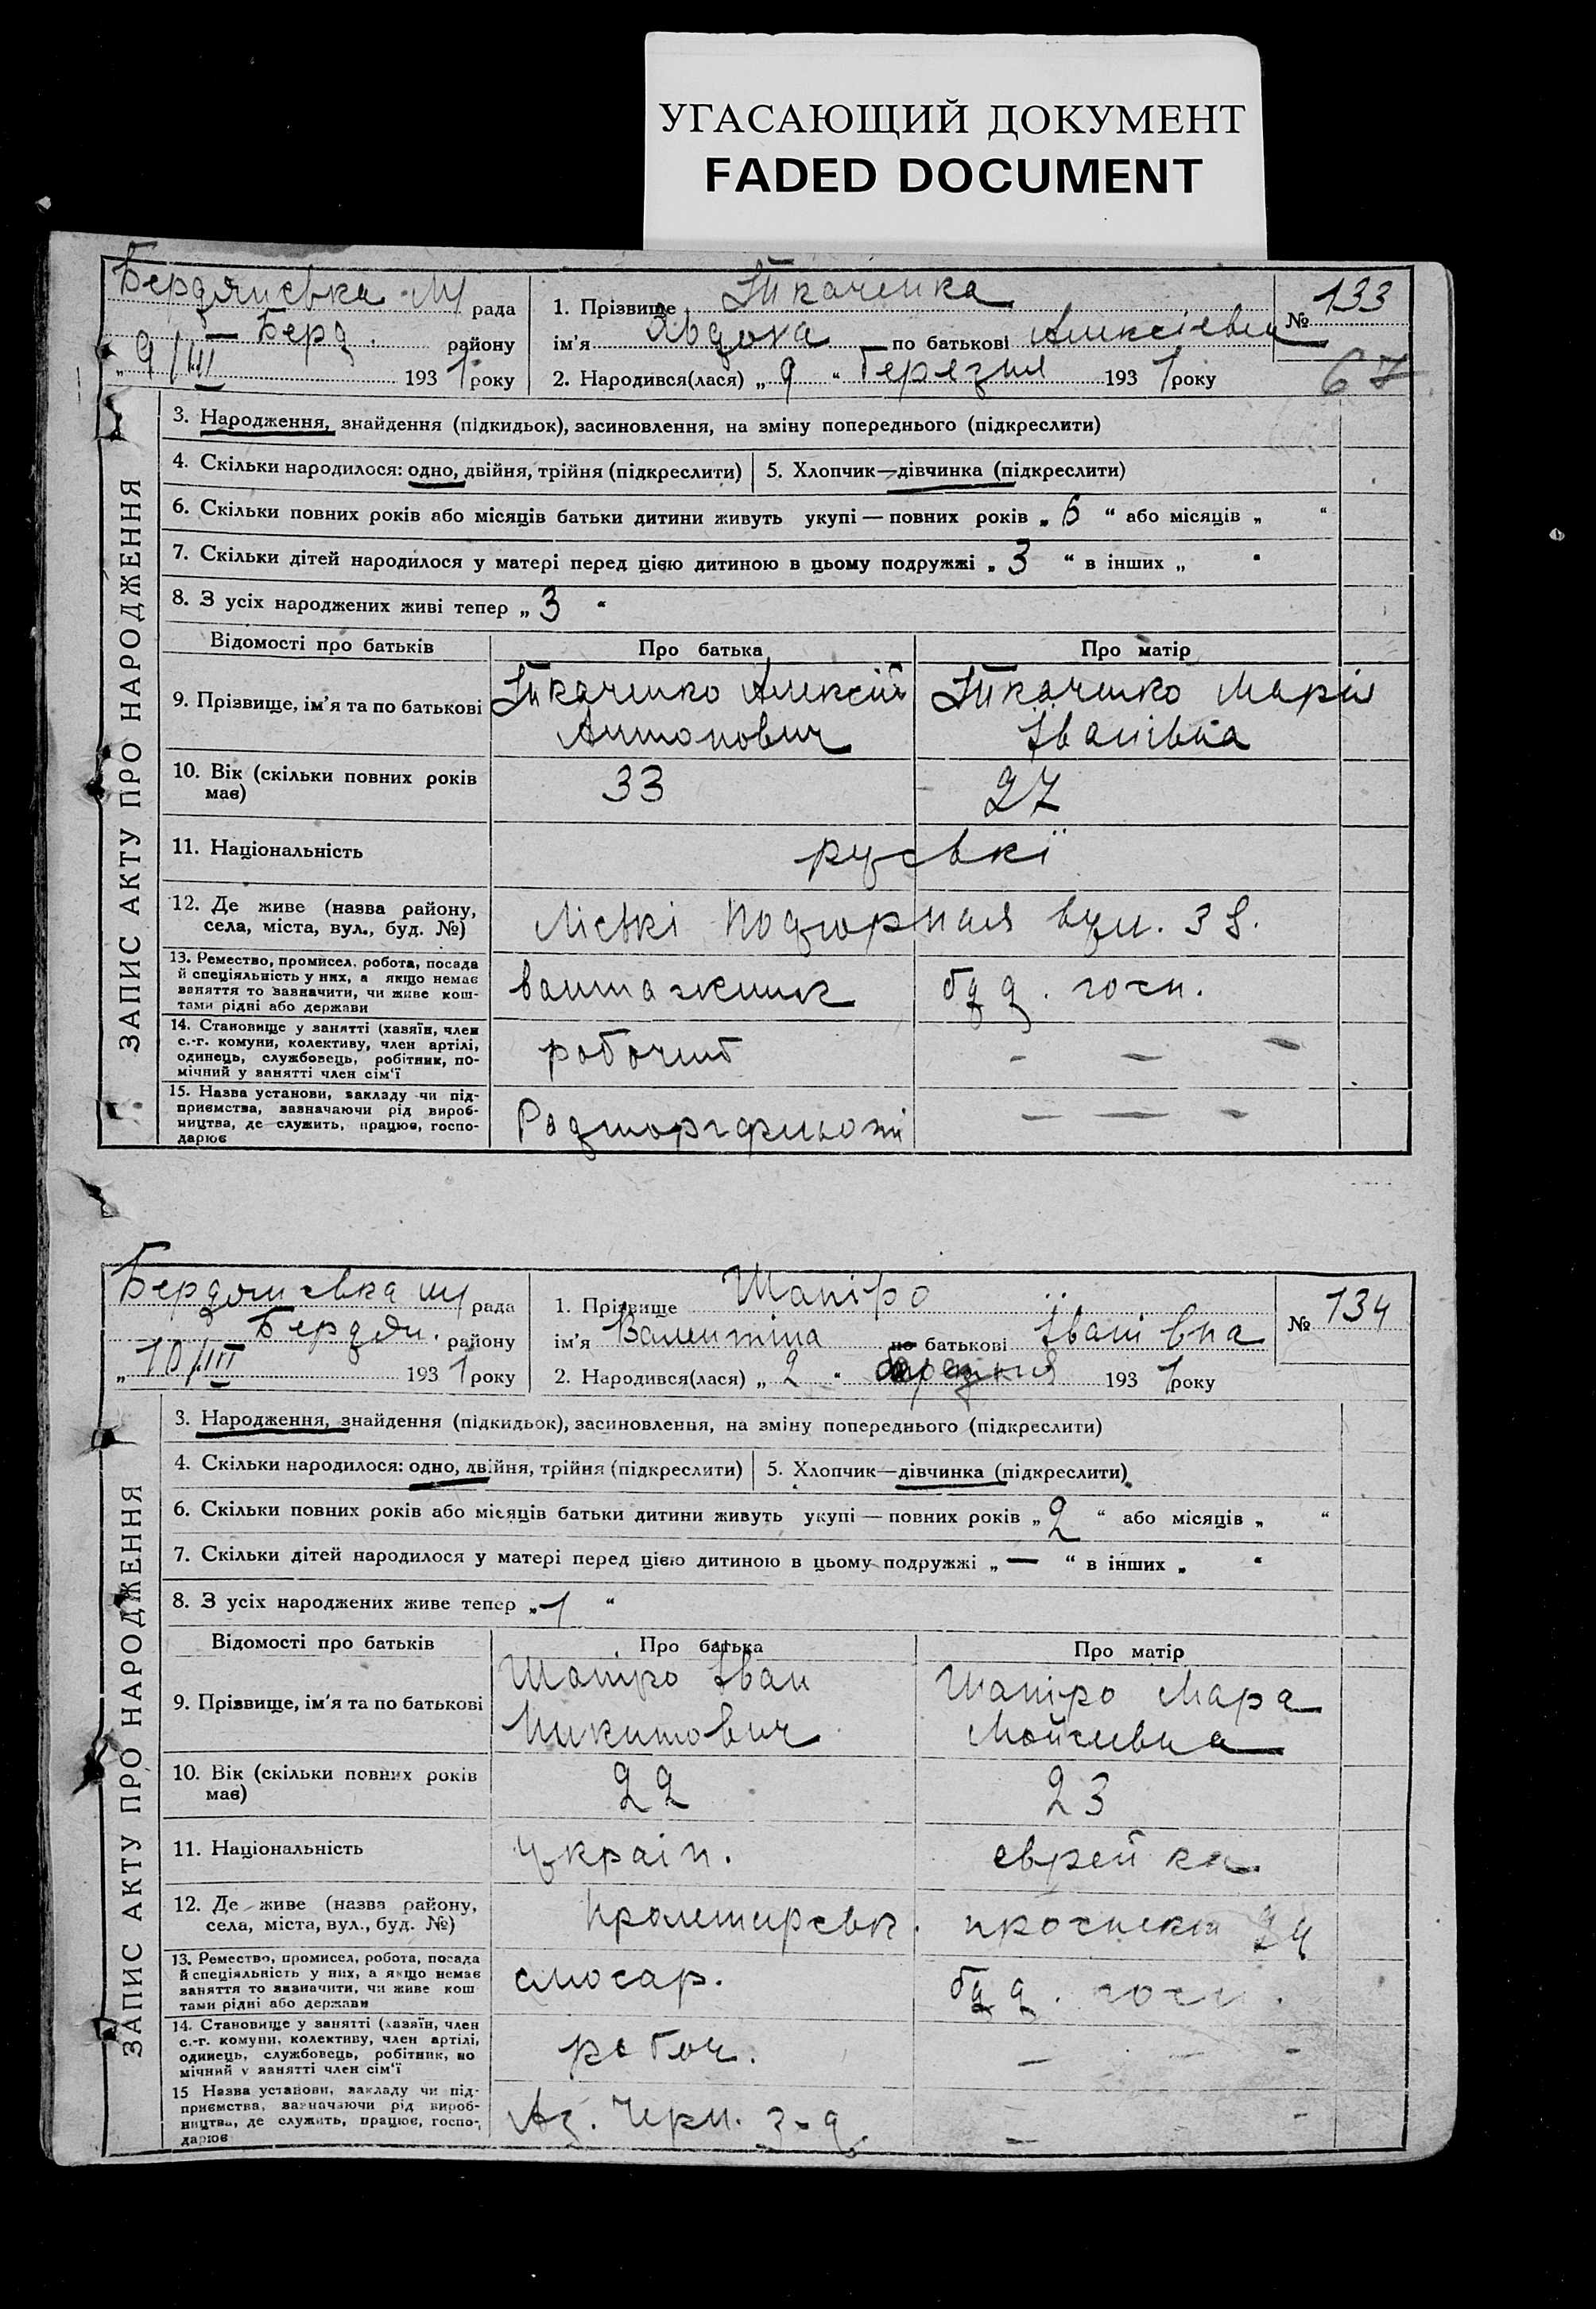 УГАСАЮЩИЙ ДОКУМЕНТ
FADED DOCUMENT
Бердянська М/ рада
Берд. району
„ 9/III 1931 року
1. Прізвище Ткаченка
ім'я Явдоха по батькові Алексієвна
2. Народився(лася) „ 9 “ березня 1931 року
№ 133
67
ЗАПИС АКТУ ПРО НАРОДЖЕННЯ
3. Народження, знайдення (підкидьок), засиновлення, на зміну попереднього (підкреслити)
4. Скільки народилося: одно, двійня, трійня (підкреслити) 5. Хлопчик—дівчинка (підкреслити)
6. Скільки повних років або місяців батьки дитини живуть укупі — повних років „ 6 “ або місяців „ “
7. Скільки дітей народилося у матері перед цією дитиною в цьому подружжі „ 3 “ в інших „ “
8. З усіх народжених живі тепер „ 3 “
Відомості про батьків Про батька Про матір
9. Прізвище, ім'я та по батькові Ткаченко Алексій Ткаченко Марія
Антонович Іванівна
10. Вік (скільки повних років 33 27
має)
11. Національність руські
12. Де живе (назва району, Ліскі Подгорная вул. 38.
села, міста, вул., буд. №)
13. Ремество, промисел, робота, посада
й спеціяльність у них, а якщо немає вантажник буд. госп.
заняття то зазначити, чи живе кош-
тами рідні або держави
14. Становище у занятті (хазяїн, член
с.-г. комуни, колективу, член артілі, робочий — — —
одинець, службовець, робітник, по-
мічний у занятті член сім'ї
15. Назва установи, закладу чи під-
приємства, зазначаючи рід вироб- — — —
ництва, де служить, працює, госпо-
дарює
Бердянська М/ рада
Бердян. району
„ 10/III 1931 року
1. Прізвище Шапіро
ім'я Валентіна по батькові Іванівна
2. Народився(лася) „ 2 “ березня 1931 року
№ 134
ЗАПИС АКТУ ПРО НАРОДЖЕННЯ
3. Народження, знайдення (підкидьок), засиновлення, на зміну попереднього (підкреслити)
4. Скільки народилося: одно, двійня, трійня (підкреслити) 5. Хлопчик—дівчинка (підкреслити)
6. Скільки повних років або місяців батьки дитини живуть укупі — повних років „ 2 “ або місяців „ “
7. Скільки дітей народилося у матері перед цією дитиною в цьому подружжі „ — “ в інших „ “
8. З усіх народжених живе тепер „ 1 “
Відомості про батьків Про батька Про матір
9. Прізвище, ім'я та по батькові Шапіро Іван Шапіро Мара
Микитович Мойсіївна
10. Вік (скільки повних років 22 23
має)
11. Національність україн. єврейка
12. Де живе (назва району, Пролетарськ. проспект 34
села, міста, вул., буд. №)
13. Ремество, промисел, робота, посада
й спеціяльність у них, а якщо немає слюсар. буд. госп.
заняття то зазначити, чи живе кош
тами рідні або держави
14. Становище у занятті (хазяїн, член
с.-г. комуни, колективу, член артілі, робоч. — — —
одинець, службовець, робітник, по
мічний у занятті член сім'ї
15 Назва установи, закладу чи під-
приємства, зазначаючи рід вироб- Аз. Черн. з-д — — —
ництва, де служить, працює, госпо-
дарює